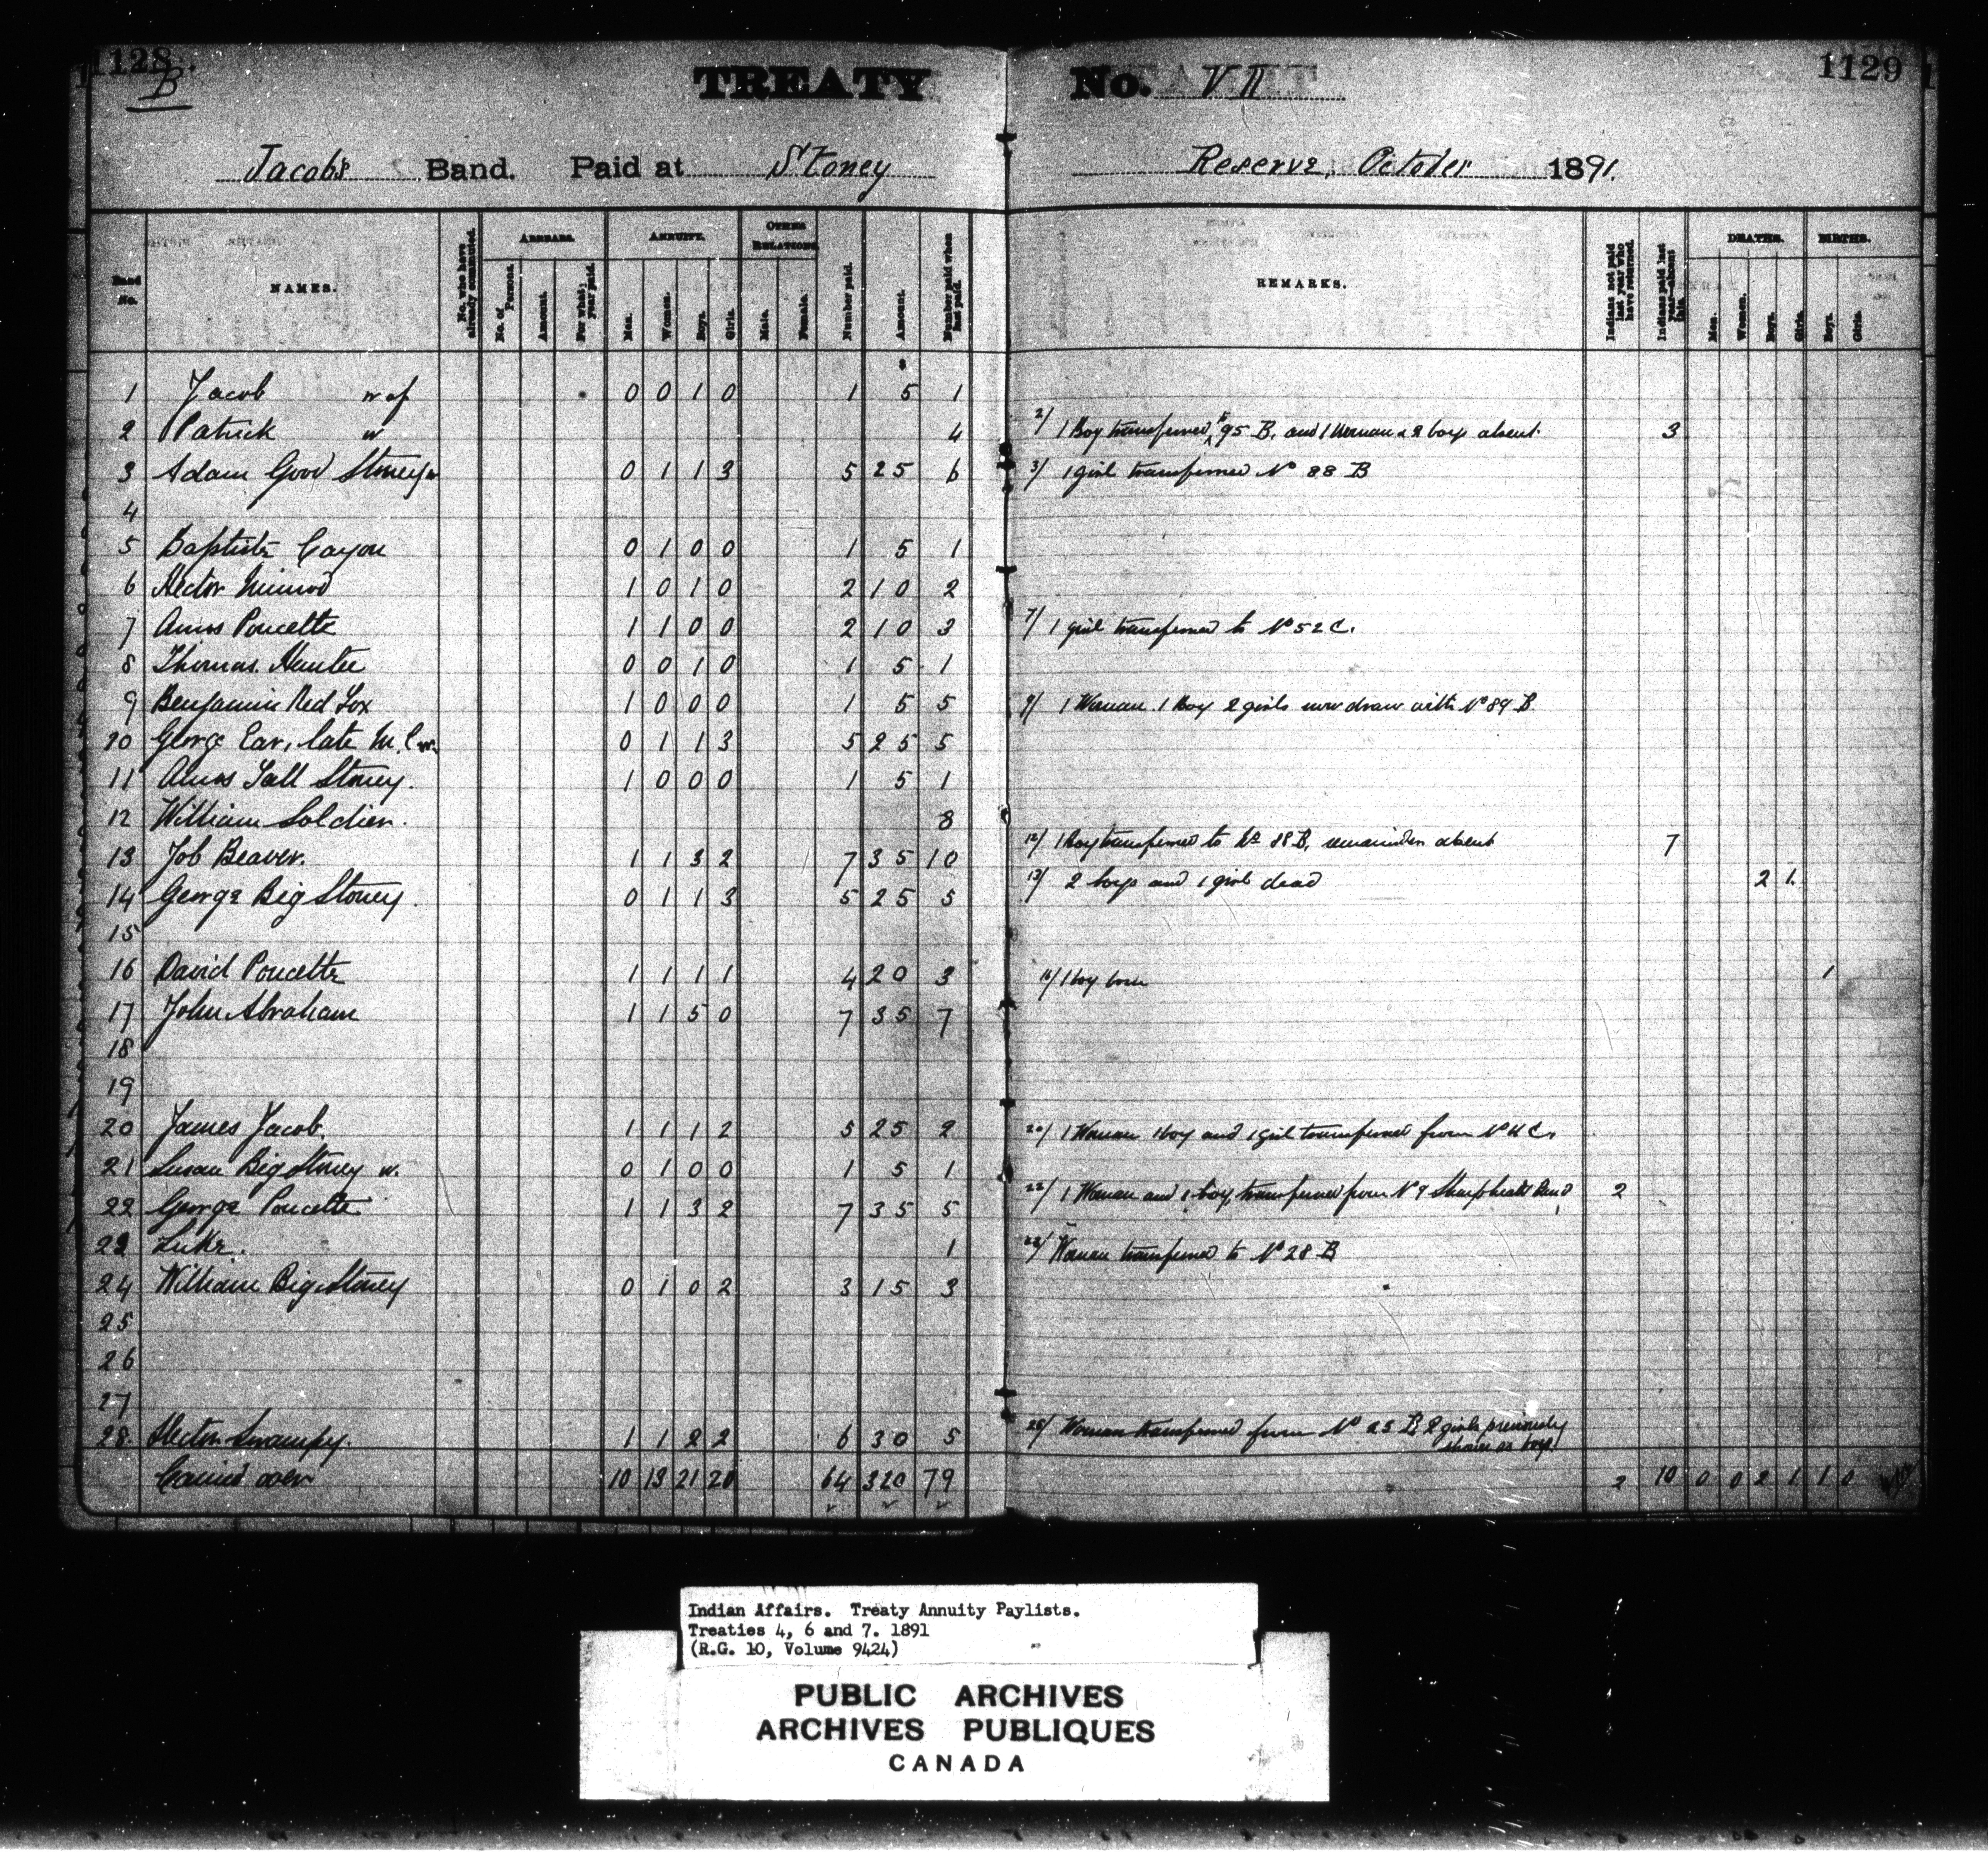 1128 TREATY No. VII 1129
B
Jacob's Band. Paid at Stoney Reserve, October 1891.
Band No. NAMES. No. who have already commuted. ARREARS. ANNUITY. OTHER RELATIONS. Number paid. Amount. Number paid when last paid. REMARKS. Indians not paid last year who have returned. Indians paid last year—absent this. DEATHS. BIRTHS.
No. of Persons. Amount. For what year paid. Men. Women. Boys. Girls. Male. Female. Men. Women. Boys. Girls. Boys. Girls.
1 Jacob w of 0 0 1 0 1 5 1
2 Patrick w 4 2/ 1 Boy transferred to 95 B. and 1 Woman & 2 boys absent. 3
3 Adam Good Stoney w 0 1 1 3 5 25 6 3/ 1 girl transferred No 88 B
4
5 Baptiste Cayou 0 1 0 0 1 5 1
6 Hector Nimrod 1 0 1 0 2 10 2
7 Amos Poucette 1 1 0 0 2 10 3 7/ 1 girl transferred to No 52 C.
8 Thomas Hunter 0 0 1 0 1 5 1
9 Benjamin Red Fox 1 0 0 0 1 5 5 9/ 1 Woman 1 Boy 2 girls now draw with No 89 B
10 George Ear, late M. C w. 0 1 1 3 5 25 5
11 Amos Tall Stoney. 1 0 0 0 1 5 1
12 William Soldier. 8 12/ 1 Boy transferred to No 88 B, remainder absent 7
13 Job Beaver. 1 1 3 2 7 35 10 13/ 2 boys and 1 girl dead 2 1
14 George Big Stoney. 0 1 1 3 5 25 5
15
16 David Poucette 1 1 1 1 4 20 3 16/ 1 boy born 1
17 John Abraham 1 1 5 0 7 35 7
18
19
20 James Jacob. 1 1 1 2 5 25 2 20/ 1 Woman 1 boy and 1 girl transferred from No 4 C.
21 Susan Big Stoney w. 0 1 0 0 1 5 1
22 George Poucette 1 1 3 2 7 35 5 22/ 1 Woman and 1 boy, transferred from No 9 Band 2
23 Luke. 1 23/ Woman transferred to No 28 B
24 William Big Stoney 0 1 0 2 3 15 3
25
26
27
28. Hector Swampy. 1 1 2 2 6 30 5 28/ Woman transferred from No 23 B, 2 girls previously
shown as boys
Carried over 10 13 21 20 64 320 79 2 10 0 0 2 1 1 0
Indian Affairs. Treaty Annuity Paylists.
Treaties 4, 6 and 7. 1891
(R.G. 10, Volume 9424)
PUBLIC ARCHIVES
ARCHIVES PUBLIQUES
CANADA